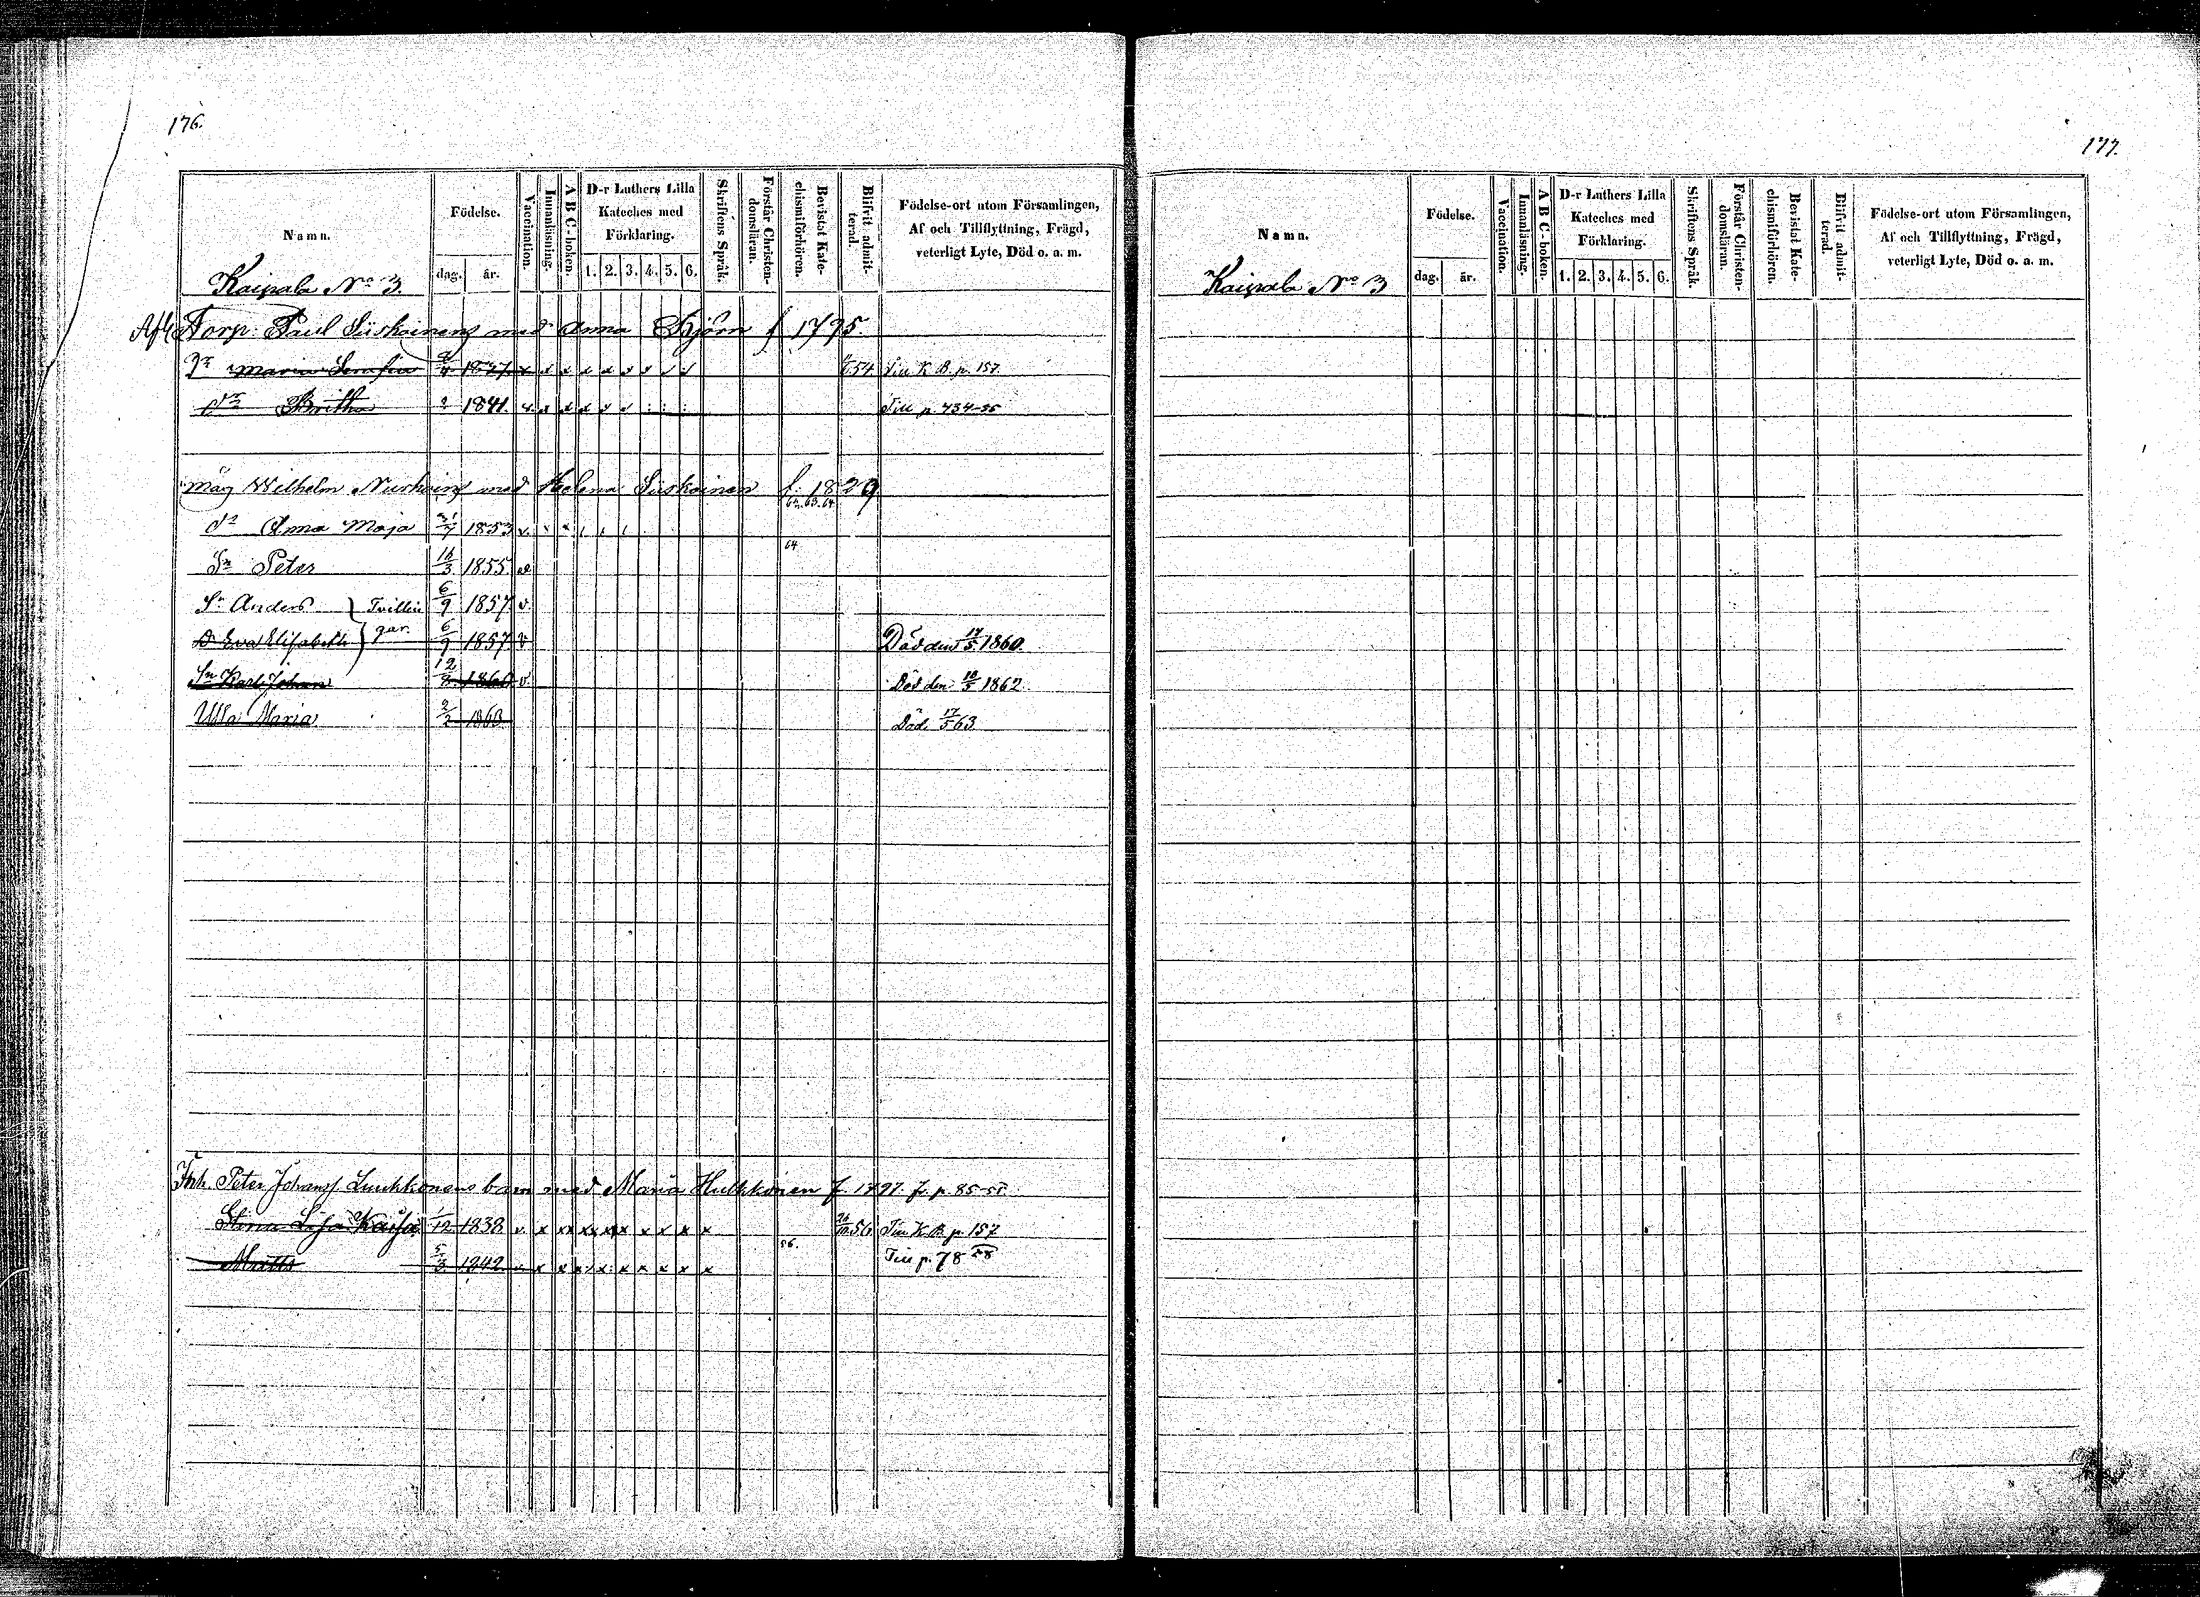 176.
Namn.
Födelse.
dag. år.
Vaccination.
Innanläsning.
A B C-boken.
D-r Luthers Lilla Kateches med Förklaring.
1. 2. 3. 4. 5. 6.
Skriftens Språk.
Förstår Christendomsläran.
Bevistat Katechismiförhören.
Blifvit admitterad.
Födelse-ort utom Församlingen, Af och Tillflyttning, Frägd, veterligt Lyte, Död o. a. m.
Kaipala No 3.
Torp. Paul Siiskoinens med Anna Björn f 1795.
Dr Maria Serafia 1827. 54 Till K B. p. 157.
dr Britha 1841. Till p. 434-35
måg Wilhelm Nurhoinens med Helena Siiskoinen f. 1829
62. 63. 64
dr Anna Maja 1853 v.
64
Sn Peter 16/3 1855.
Sn Anders Tvillin 6/9 1857. v.
D. Eva Elisabeth gar. 6/9 1857. v Död den 17/5 1860.
Sn Karl Johan 12/8 1860 v. Död den 18/5 1862
Ulla Maria 2/2 1863 Död. 17/5 63
Inh. Peter Johanss. Luukkonens barn med Maria Hulkkonen f. 1797. fr. p. 85-55
Stina Lisa Kaisa 1/12 1838 v. 56 Till K. B. p. 157
56.
Matts 5/3 1842 Till p. 78 58
177.
Namn.
Födelse.
dag. år.
Vaccination.
Innanläsning.
A B C-boken.
D-r Luthers Lilla Kateches med Förklaring.
1. 2. 3. 4. 5. 6.
Skriftens Språk.
Förstår Christendomsläran.
Bevistat Katechismiförhören.
Blifvit admitterad.
Födelse-ort utom Församlingen, Af och Tillflyttning, Frägd, veterligt Lyte, Död o. a. m.
Kaipala No 3